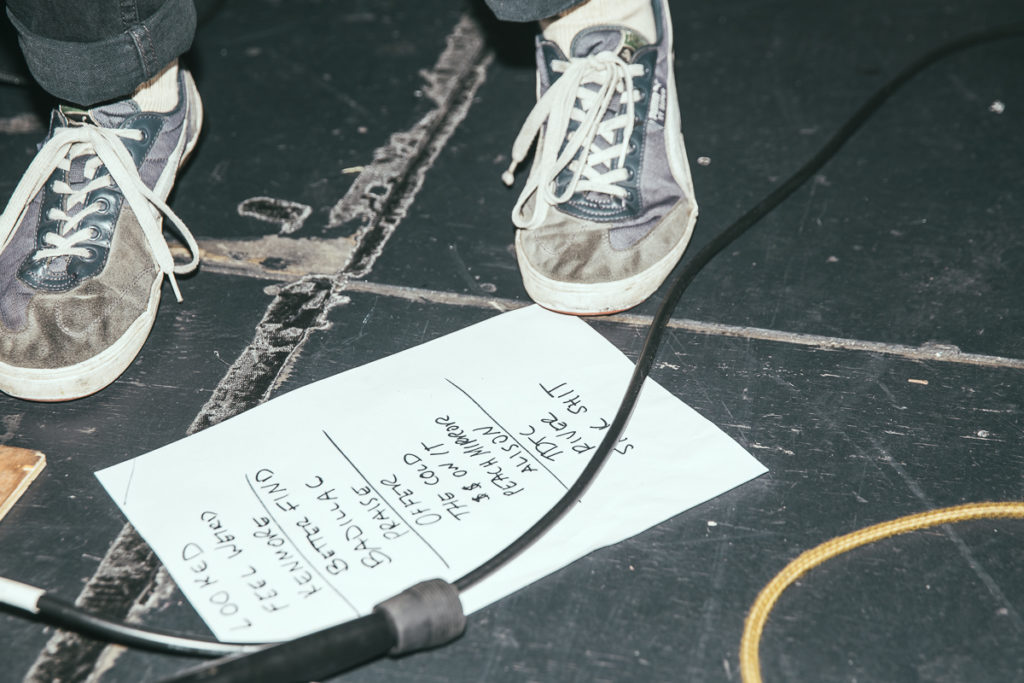 LOOKED
FEEL WEIRD
KENMORE
BETTER FIND
BADILLAC
PRAISE
OFFER
THE COLD
$$ ON IT
PEACH MIRROR
ALISON
TDTC
RIVER
SICK SHIT